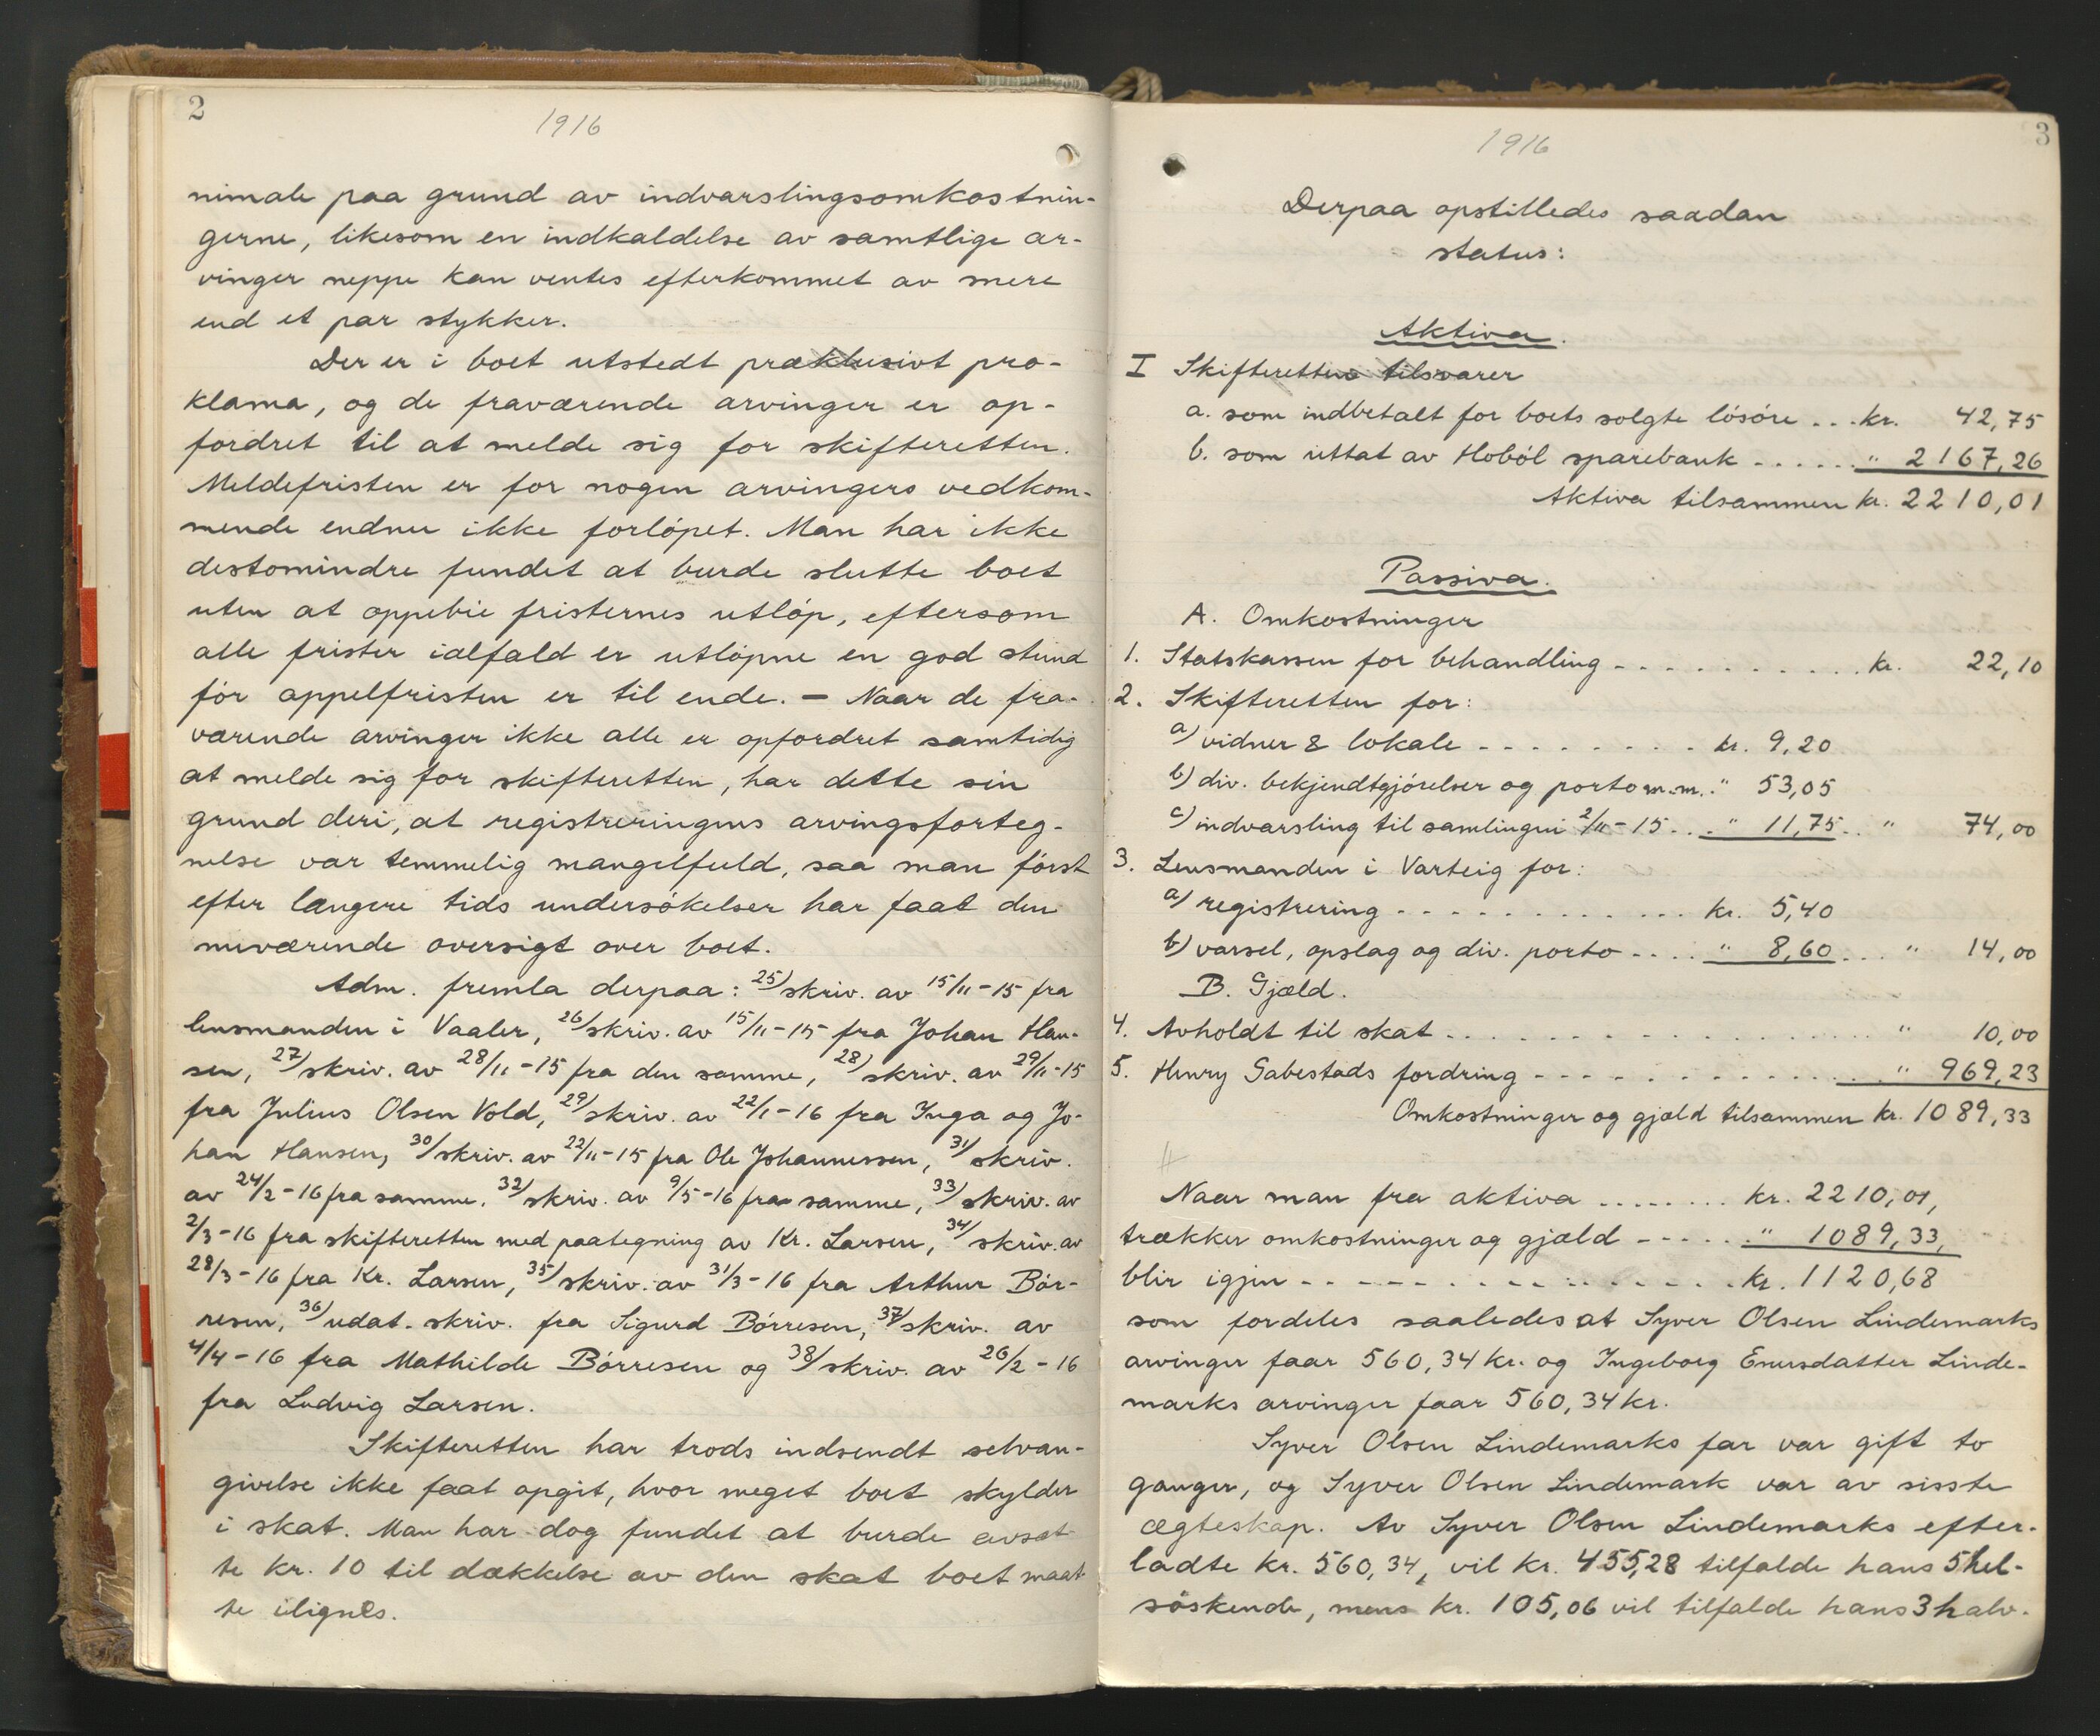 2
1916
nimale paa grund av indvarslingsomkostnin-
gerne, likesom en indkaldelse av samtlige ar-
vinger neppe kan ventes efterkommet av mere
end et par stykker.
Der er i boet utstedt præklusivt pro-
klama, og de fraværende arvinger er op-
fordret til at melde sig for skifteretten.
Meldefristen er for nogen arvingers vedkom-
mende endnu ikke forløpet. Man har ikke
destomindre fundet at burde slutte boet
uten at oppebie fristernes utløp, eftersom
alle frister ialfald er utløpne en god stund
før appelfristen er til ende. – Naar de fra-
værende arvinger ikke alle er opfordret samtidig
at melde sig for skifteretten, har dette sin
grund deri, at registreringens arvingsforteg-
nelse var temmelig mangelfuld, saa man først
efter længere tids undersøkelser har faat den
nuværende oversigt over boet.
Adm. fremla derpaa: 25) skriv. av 15/11-15 fra
lensmanden i Vaaler, 26) skriv. av 15/11-15 fra Johan Han-
sen, 27) skriv. av 28/11-15 fra den samme, 28) skriv. av 29/11-15
fra Julius Olsen Vold, 29) skriv. av 22/1-16 fra Inga og Jo-
han Hansen, 30) skriv. av 22/11-15 fra Ole Johannessen, 31) skriv.
av 24/2-16 fra samme. 32) skriv. av 9/5-16 fra samme, 33) skriv. av
2/3-16 fra skifteretten med paategning av Kr. Larsen, 34) skriv. av
28/3-16 fra Kr. Larsen, 35) skriv. av 31/3-16 fra Arthur Bør-
resen, 36) udat. skriv. fra Sigurd Børresen, 37) skriv. av
4/4-16 fra Mathilde Børresen og 38) skriv. av 26/2-16
fra Ludvig Larsen.
Skifteretten har trods indsendt selvan-
givelse ikke faat opgit, hvor meget boet skylder
i skat. Man har dog fundet at burde avsæt-
te kr. 10 til dækkelse av den skat boet maat-
te ilignes.
3
1916
Derpaa opstilledes saadan
status:
Aktiva.
I Skifteretten tilsvarer
a. som indbetalt for boets solgte løsøre ... kr. 42,75
b. som uttat av Hobøl sparebank ...... " 2167,26
Aktiva tilsammen kr. 2210,01
Passiva.
A. Omkostninger
1. Statskassen for behandling ........... kr. 22,10
2. Skifteretten for:
a) vidner & lokale ......... kr. 9,20
b) div. bekjendtgjørelser og porto m.m. " 53,05
c) indvarsling til samlingen 2/11-15 ... " 11,75 .. " 74,00
3. Lensmanden i Varteig for:
a) registrering ............. kr. 5,40
b) varsel, opslag og div. porto .... " 8,60 ... " 14,00
B. Gjæld.
4. Avholdt til skat .................... " 10,00
5. Henry Gabestads fordring ................ " 969,23
Omkostninger og gjæld tilsammen kr. 1089,33
Naar man fra aktiva ........ kr. 2210,01,
trækker omkostninger og gjæld ...... " 1089,33,
blir igjen ................. kr. 1120,68
som fordeles saaledes at Syver Olsen Lindemarks
arvinger faar 560,34 kr. og Ingeborg Enersdatter Linde-
marks arvinger faar 560,34 kr.
Syver Olsen Lindemarks far var gift to
ganger, og Syver Olsen Lindemark var av sisste
ægteskap. Av Syver Olsen Lindemarks efter-
ladte kr. 560,34, vil kr. 455,28 tilfalde hans 5 hel-
søskende, mens kr. 105,06 vil tilfalde hans 3 halv-